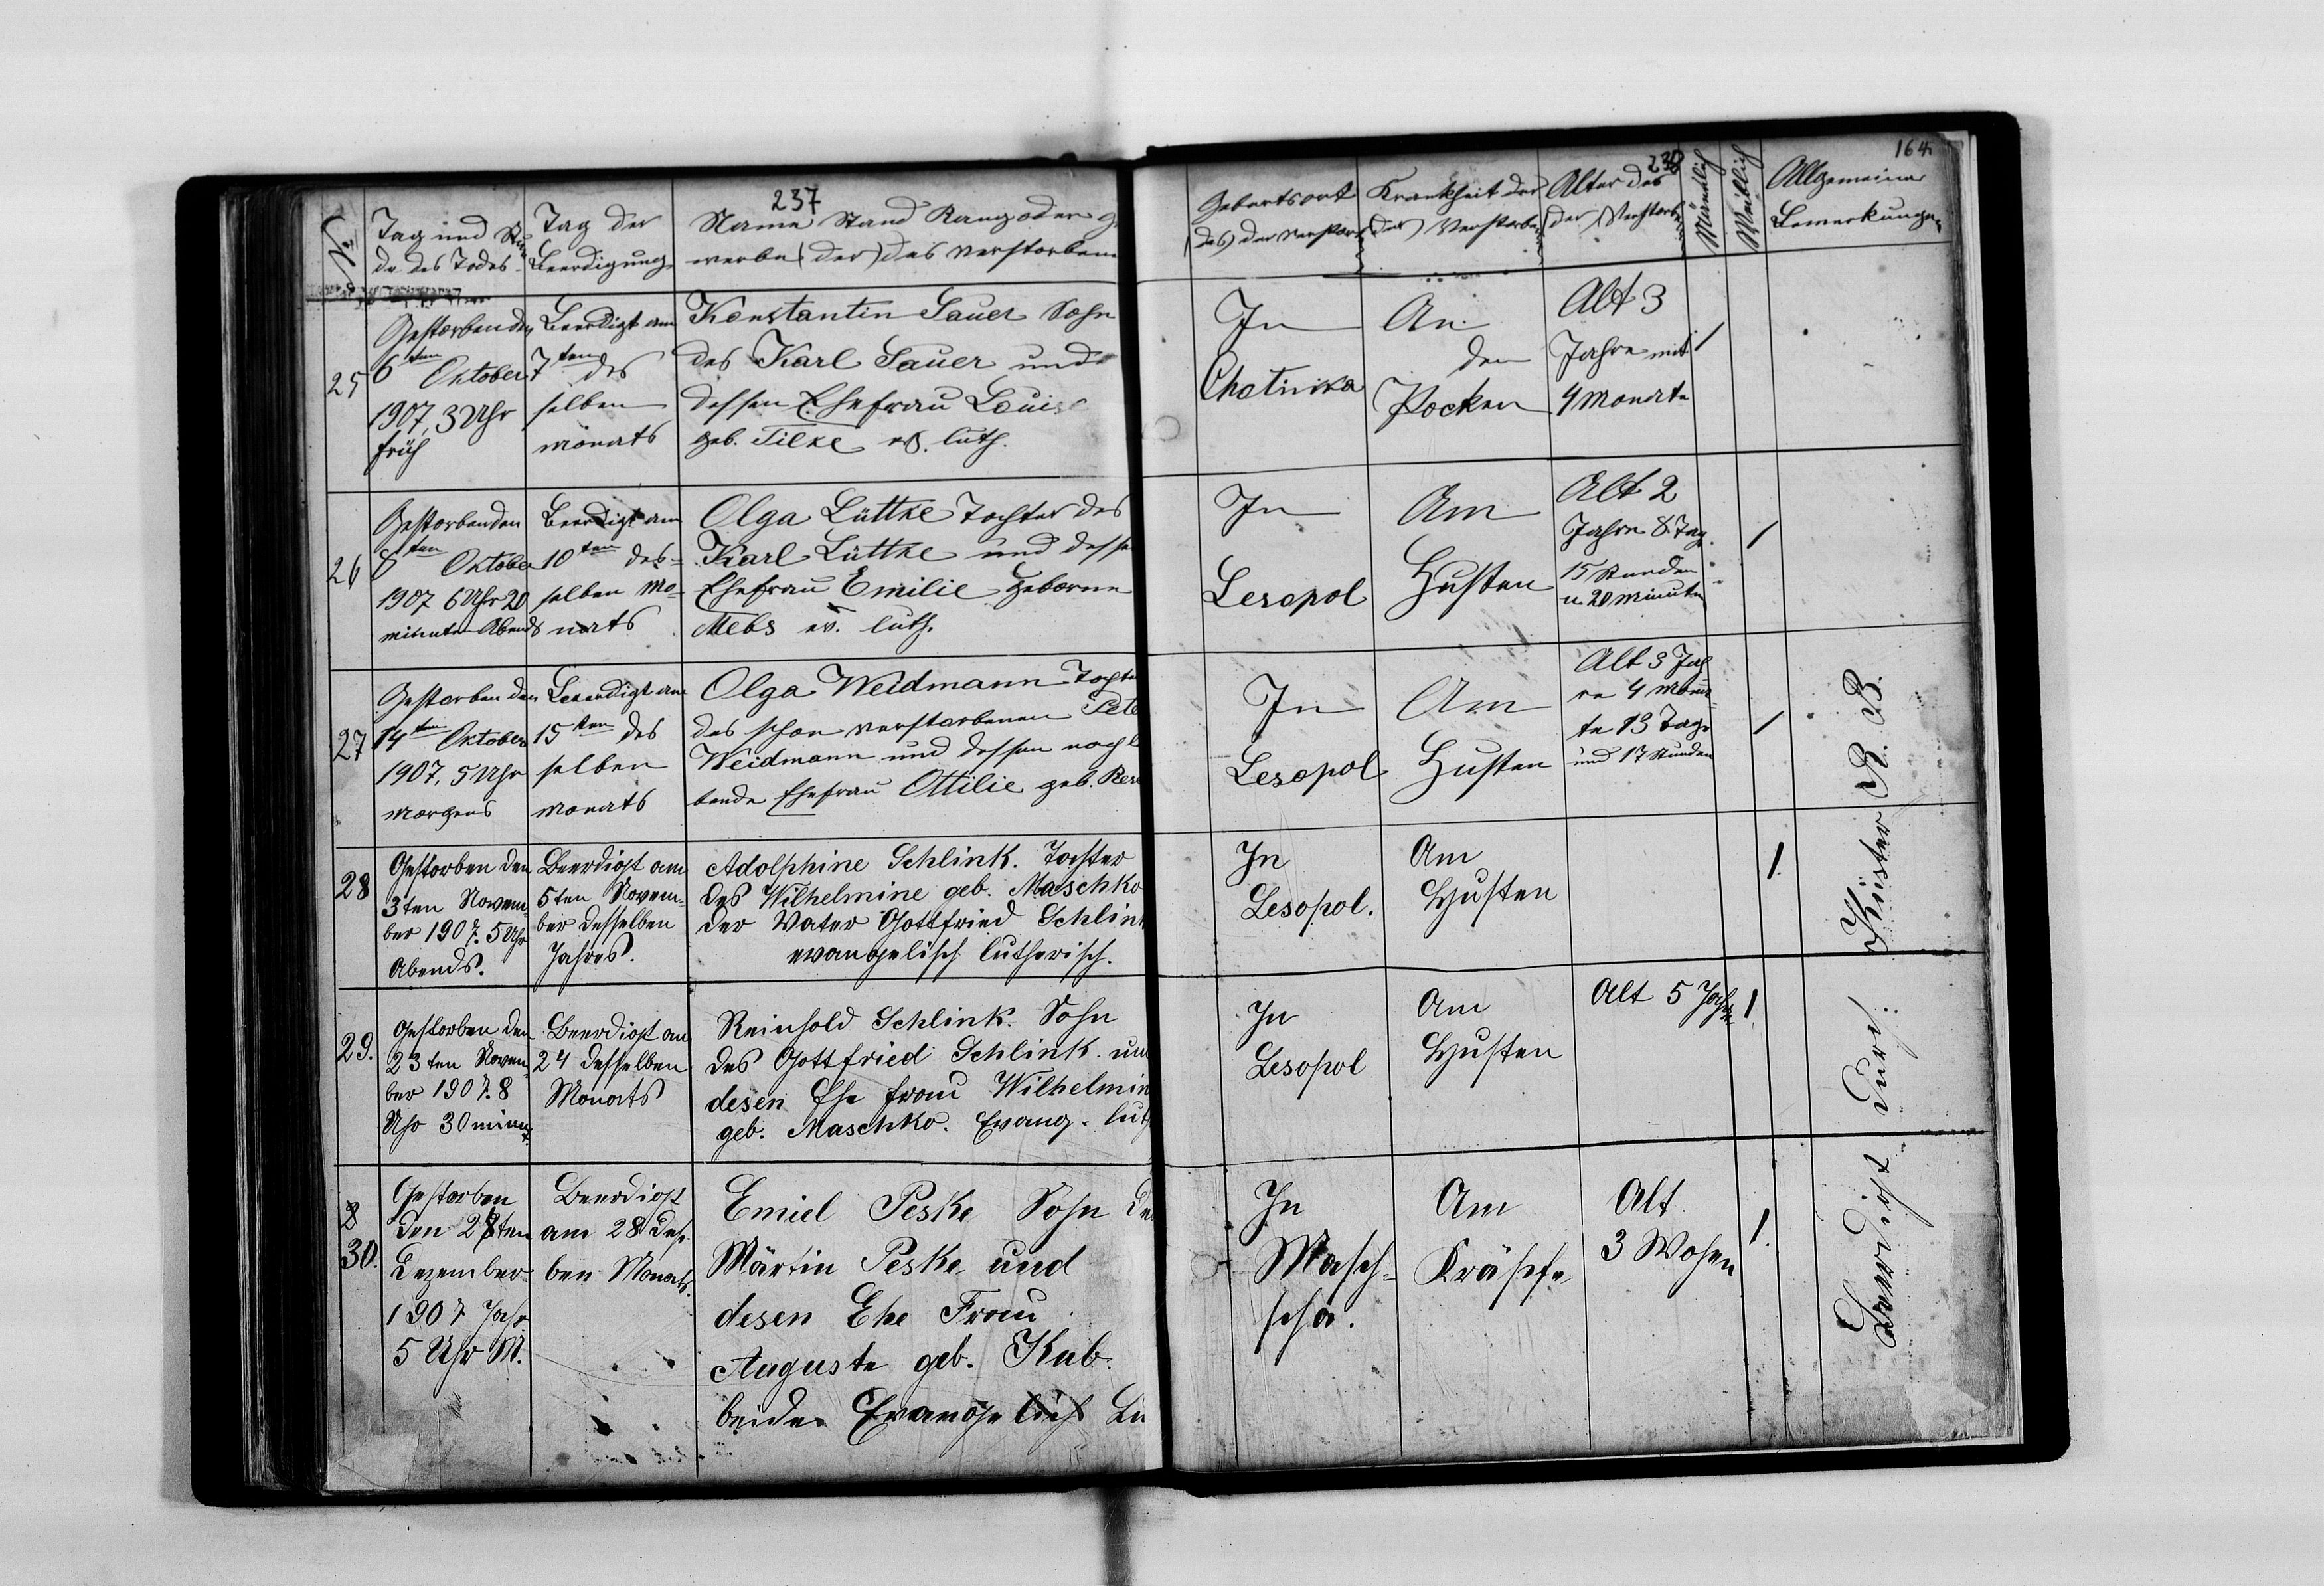 237
No
Tag und Stun
de des Todes
Tag der
Beerdigung
Name Stand Rang oder g
werbe (der) des verstorbene
25
Gestorben den
6ten Oktober
1907, 3 Uhr
früh
Beerdigt am
7ten des
selben
monats
Konstantin Sauer Sohn
des Karl Sauer und
dessen Ehefrau Louise
geb. Tilke ev. luth.
26
Gestorben den
8ten Oktober
1907 6 Uhr 20
minuten Abends
Beerdigt am
10ten des-
selben Mo-
nats
Olga Lüttke Tochter des
Karl Lüttke und desse
Ehefrau Emilie geborne
Mebs ev. luth.
27
Gestorben den
14ten Oktober
1907, 5 Uhr
morgens
Beerdigt am
15ten des
selben
monats
Olga Weidmann Tochte
des schon verstorbenen Pete
Weidmann und dessen nachle
bende Ehefrau Ottilie geb.
28
Gestorben den
3ten Novem-
ber 1907. 5 Uhr
Abends.
Beerdigt am
5ten Novem-
ber desselben
Jahres.
Adolphine Schlink. Tochter
des Wilhelmine geb. Maschko
der Vater Gottfried Schlink
evangelisch lutherisch.
29.
Gestorben den
23ten Novem-
ber 1907. 8
Uhr 30 minut.
Beerdigt am
24 desselben
Monats
Reinhold Schlink. Sohn
des Gottfried Schlink. un
desen Ehe frau Wilhelmin
geb. Maschko. Evang. luth
30.
Gestorben
den 28ten
Dezember
1907 Jahr.
5 Uhr M.
Beerdigt
am 28 desel.
ben Monats.
Emiel Peske Sohn de
Märtin Peske und
desen Ehe Frau
Auguste geb. Kub.
beide Evangelich Lu
238
164
Geburtsort
(des) der verstorb
Krankheit der
(des) Verstorbe
Alter des
(der) Verstorbe
Männlich
Weiblich
Allgemeine
Bemerkungen
In
Chatinka
An
den
Pocken
Alt 3
Jahre mit
4 Monate
1
In
Lesopol
Am
Husten
Alt 2
Jahre 8. Tag.
15 Stunden
u. 20 Minuten
1
In
Lesopol
Am
Husten
Alt 3 Jah
re 4 Mona
te 13 Tage
und 17 Stunden
1
In
Lesopol.
Am
Husten
1.
In
Lesopol
Am
Husten
Alt 5 Jahre
1.
In
Masch-
scha.
Am
Krämpfe
Alt.
3 Wochen
1.
Beerdigt durch: Küster R. B.